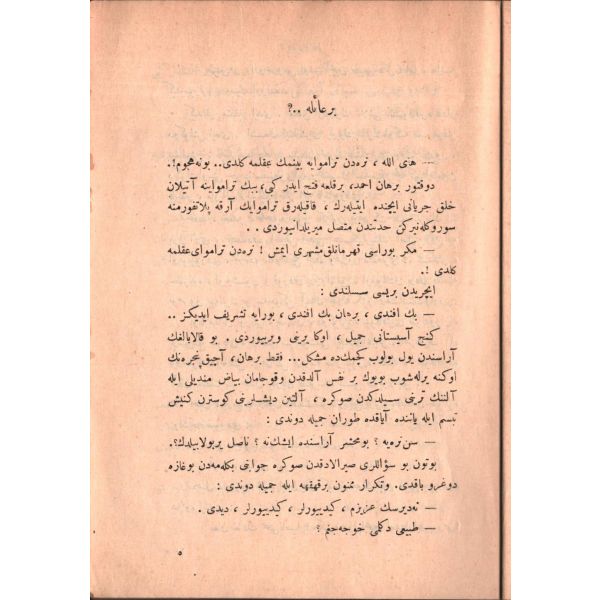 بر عائله ..؟
— هاى الله ، نره‌دن تراموايه بينمك عقلمه كلدى.. بونه هجوم!.
دوقتور برهان احمد، برقلعه فتح ايدر كبى، ببك تراموا‌ينه آتيلان
خلق جريانى ايچنده ايتيله‌رك ، قاقيله‌رق تراموايك آرقه پلاتفورمنه
سوروكله‌نيركن حدتندن متصل ميريلدانيوردى . .
— مكر بوراسى قهرمانلق مشهرى ايمش ! نره‌دن تراموای عقلمه
كلدى !.
ايچريدن بريسى سسلندى :
— بك افندى ، برهان بك افندى ، بورايه تشريف ايديكز ..
كنج آسيستانى جميل ، اوكا يرينى ويرييوردى . بو قالابالغك
آراسندن يول بولوب كچمك‌ده مشكل... فقط برهان ، آچيق پنجره‌نك
اوكنه يرله‌شوب بويوك بر نفس آلدقدن وقوجامان بياض منديلى ايله
آلننك ترينى سيلدكدن صوكره ، آلتين ديشلرينى كوسترن كنيش
تبسم ايله ياننده آياقده طوران جميله دوندى :
— سن نره‌يه ؟ بومحشر آراسنده ايشك‌نه ؟ ناصل يربولابيلدك؟.
بوتون بو سؤاللرى صيرالادقدن صوكره جوابنى بكله‌مه‌دن بوغازه
دوغرو باقدى. وتكرار ممنون برقهقهه ايله جميله دوندى :
— نه‌ديرسك عزيزم ، كيدييورلر ، كيدييورلر ، ديدى .
— طبيعى دكلمى خوجه‌جغم ؟
٥